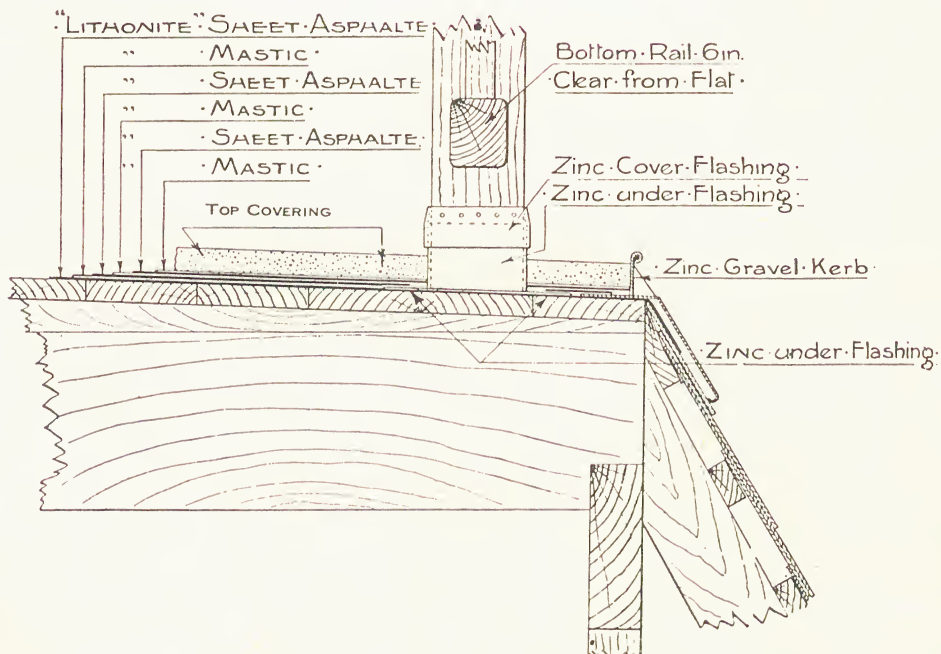 "LITHONITE" SHEET·ASPHALTE
" · MASTIC ·
" · SHEET·ASPHALTE
" · MASTIC ·
" · SHEET·ASPHALTE·
" · MASTIC ·
TOP COVERING
Bottom·Rail·6in.
·Clear·from·Flat·
Zinc·Cover·Flashing·
·Zinc·under·Flashing·
·Zinc·Gravel·Kerb
·ZINC·under·Flashing·